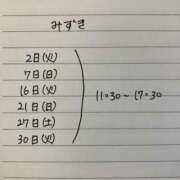 みずき
2日(火)
7日(日)
16日(火)
21日(日)
27日(土)
30日(火)
11:30~17:30